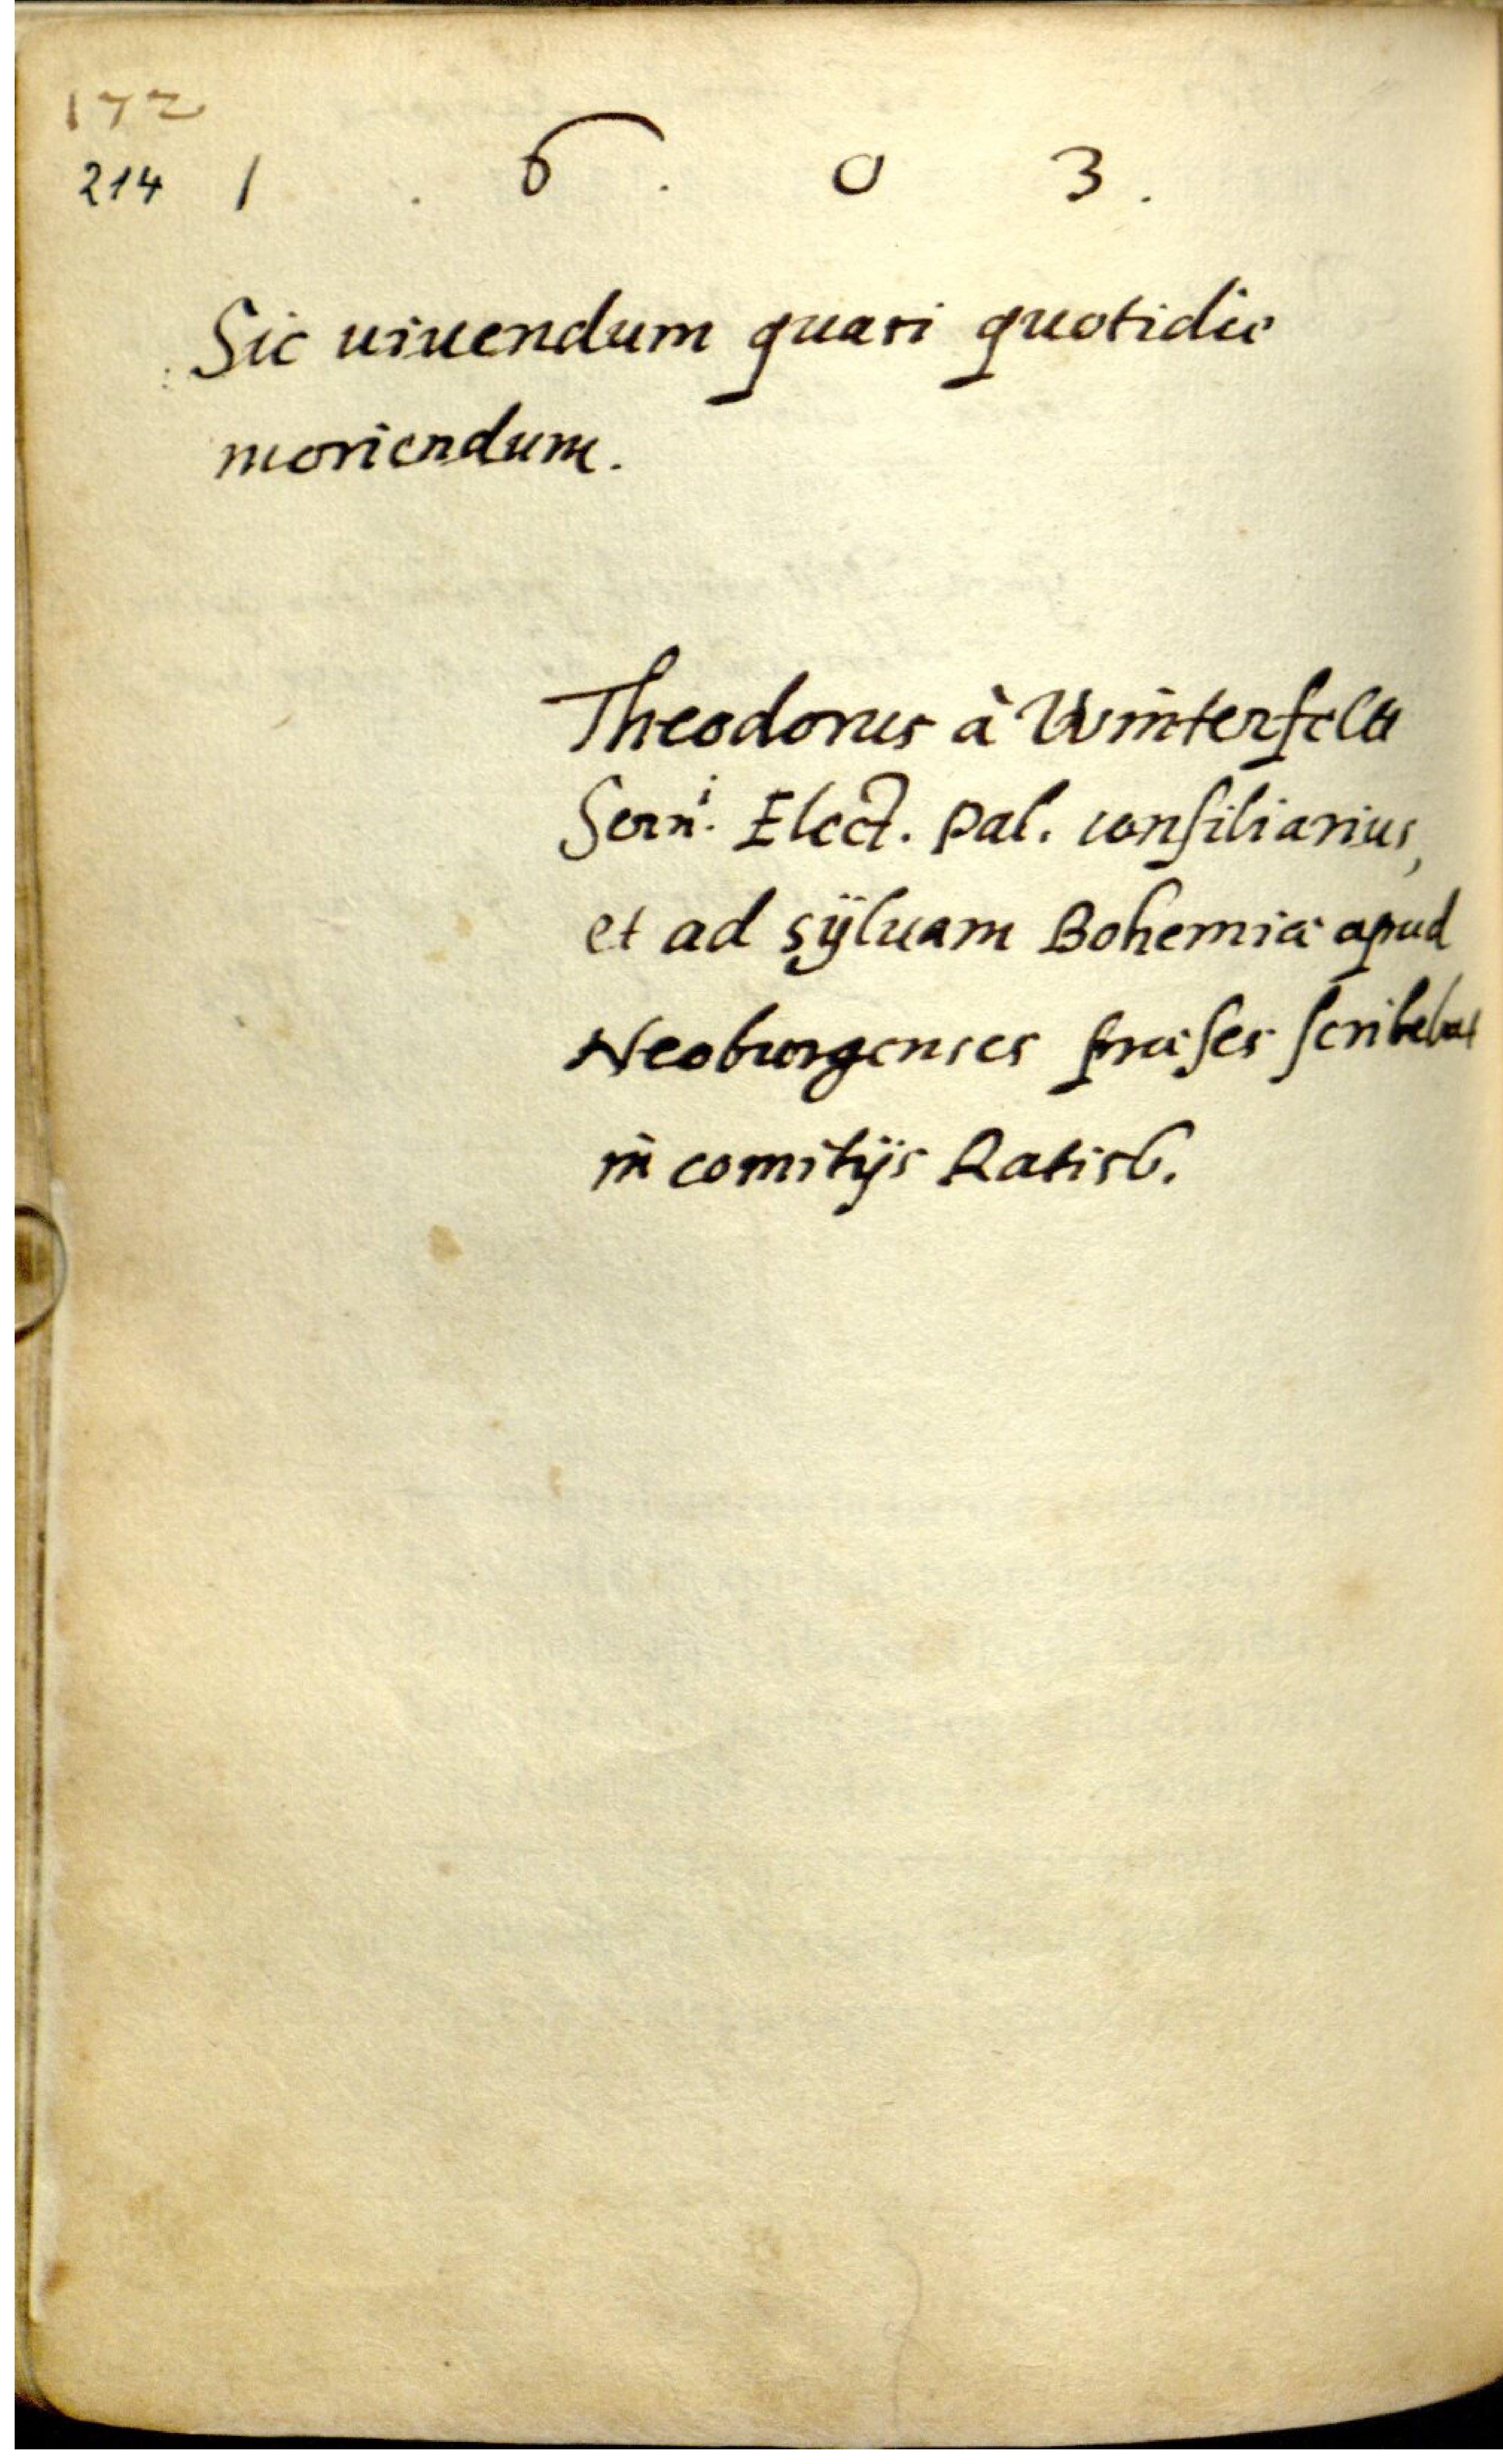 172
214 1 . 6 . 0 3 .
Sic uiuendum quasi quotidie
moriendum.
Theodorus à Winterfeldt
Sern.i Elect. Pal. consiliarius,
et ad sÿluam Bohemiæ apud
Neoburgenses præses scribebat
in comitijs Ratisb.